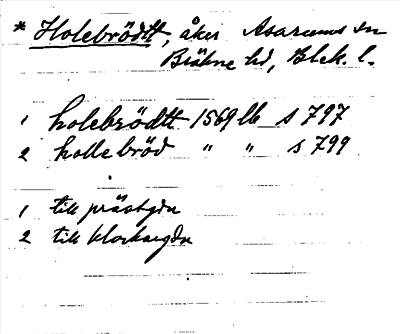 * Holebrödtt, åker Asarums sn
Bräkne hd, Blek. l.
1 holebrödtt 1569 lb s 797
2 hollebröd " " s 799
1 till prästgdn
2 till klockaregdn